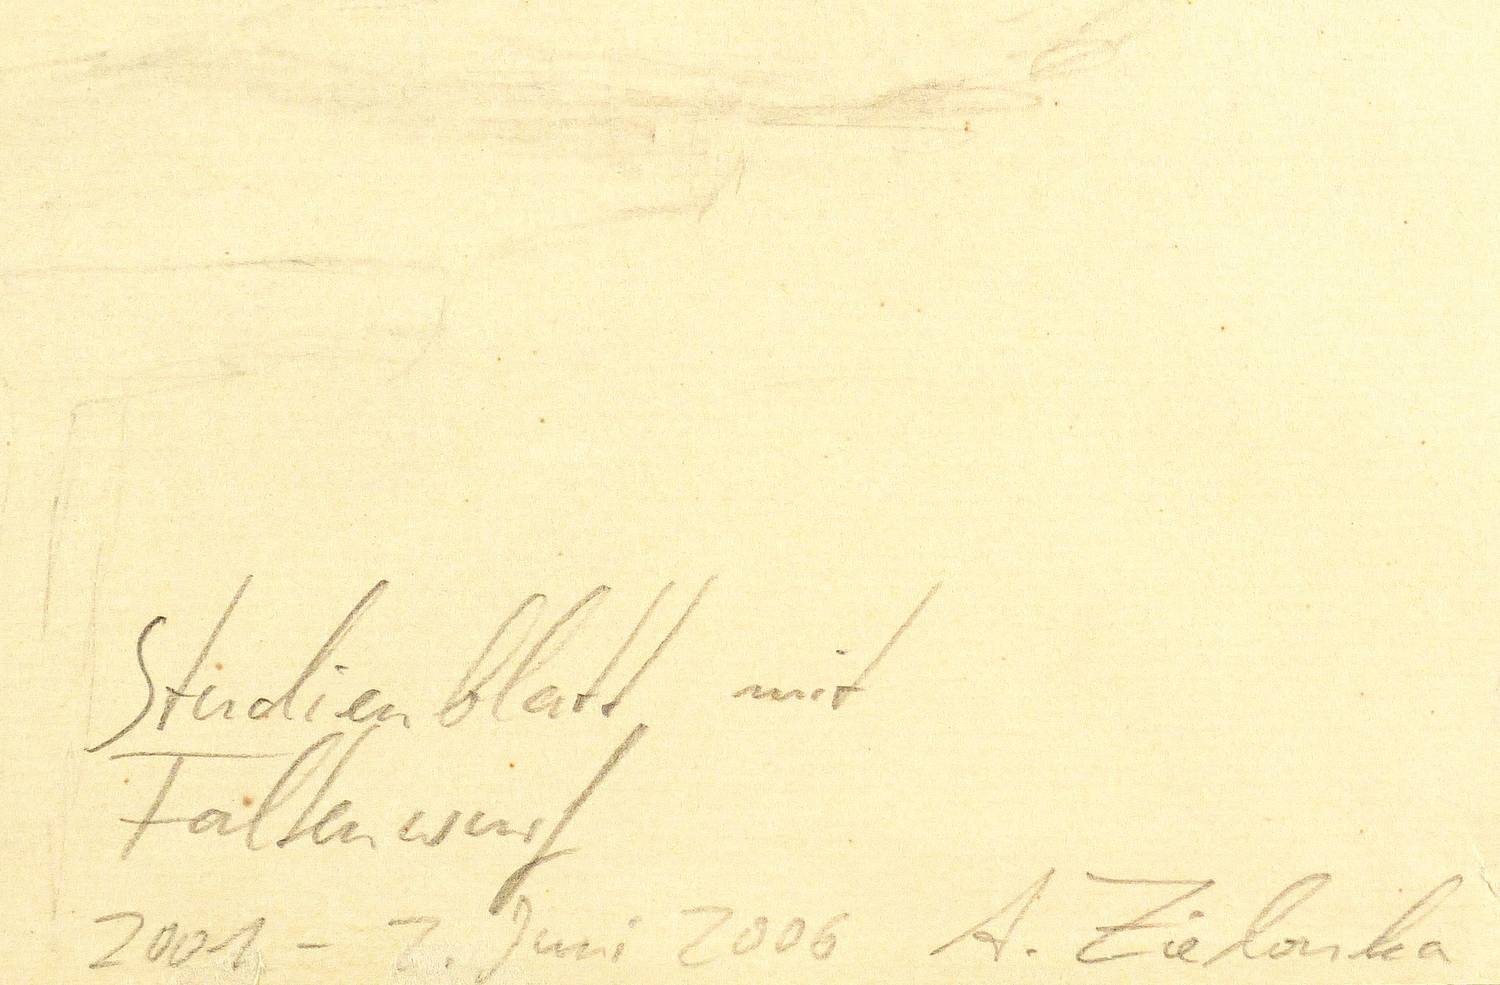 Studienblatt mit
Faltenwurf
2001 - 2. Juni 2006 A. Zielonka